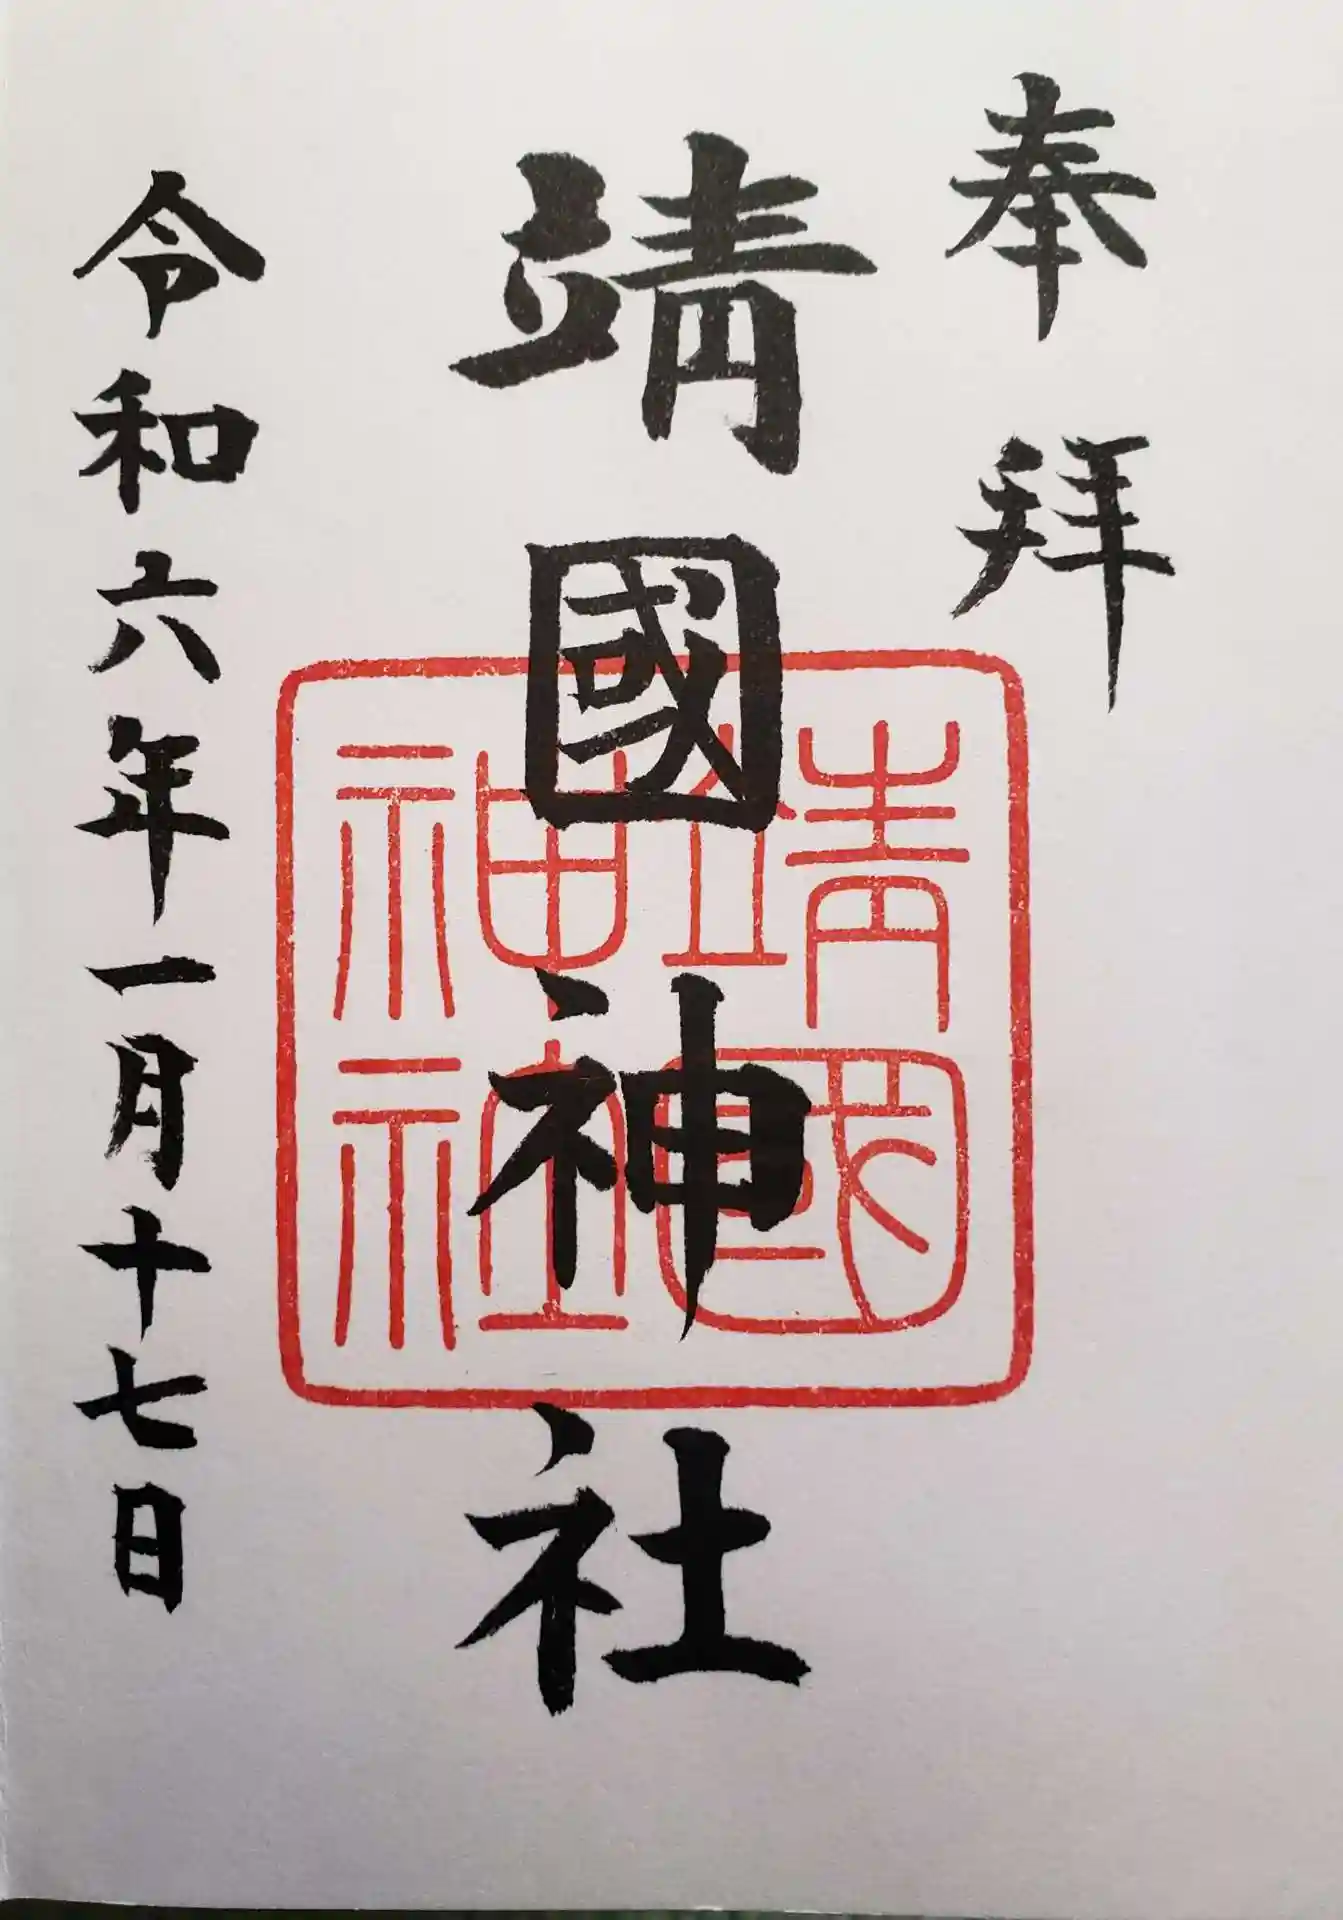 奉拜
靖國神社
靖國
神社
令和六年一月十七日